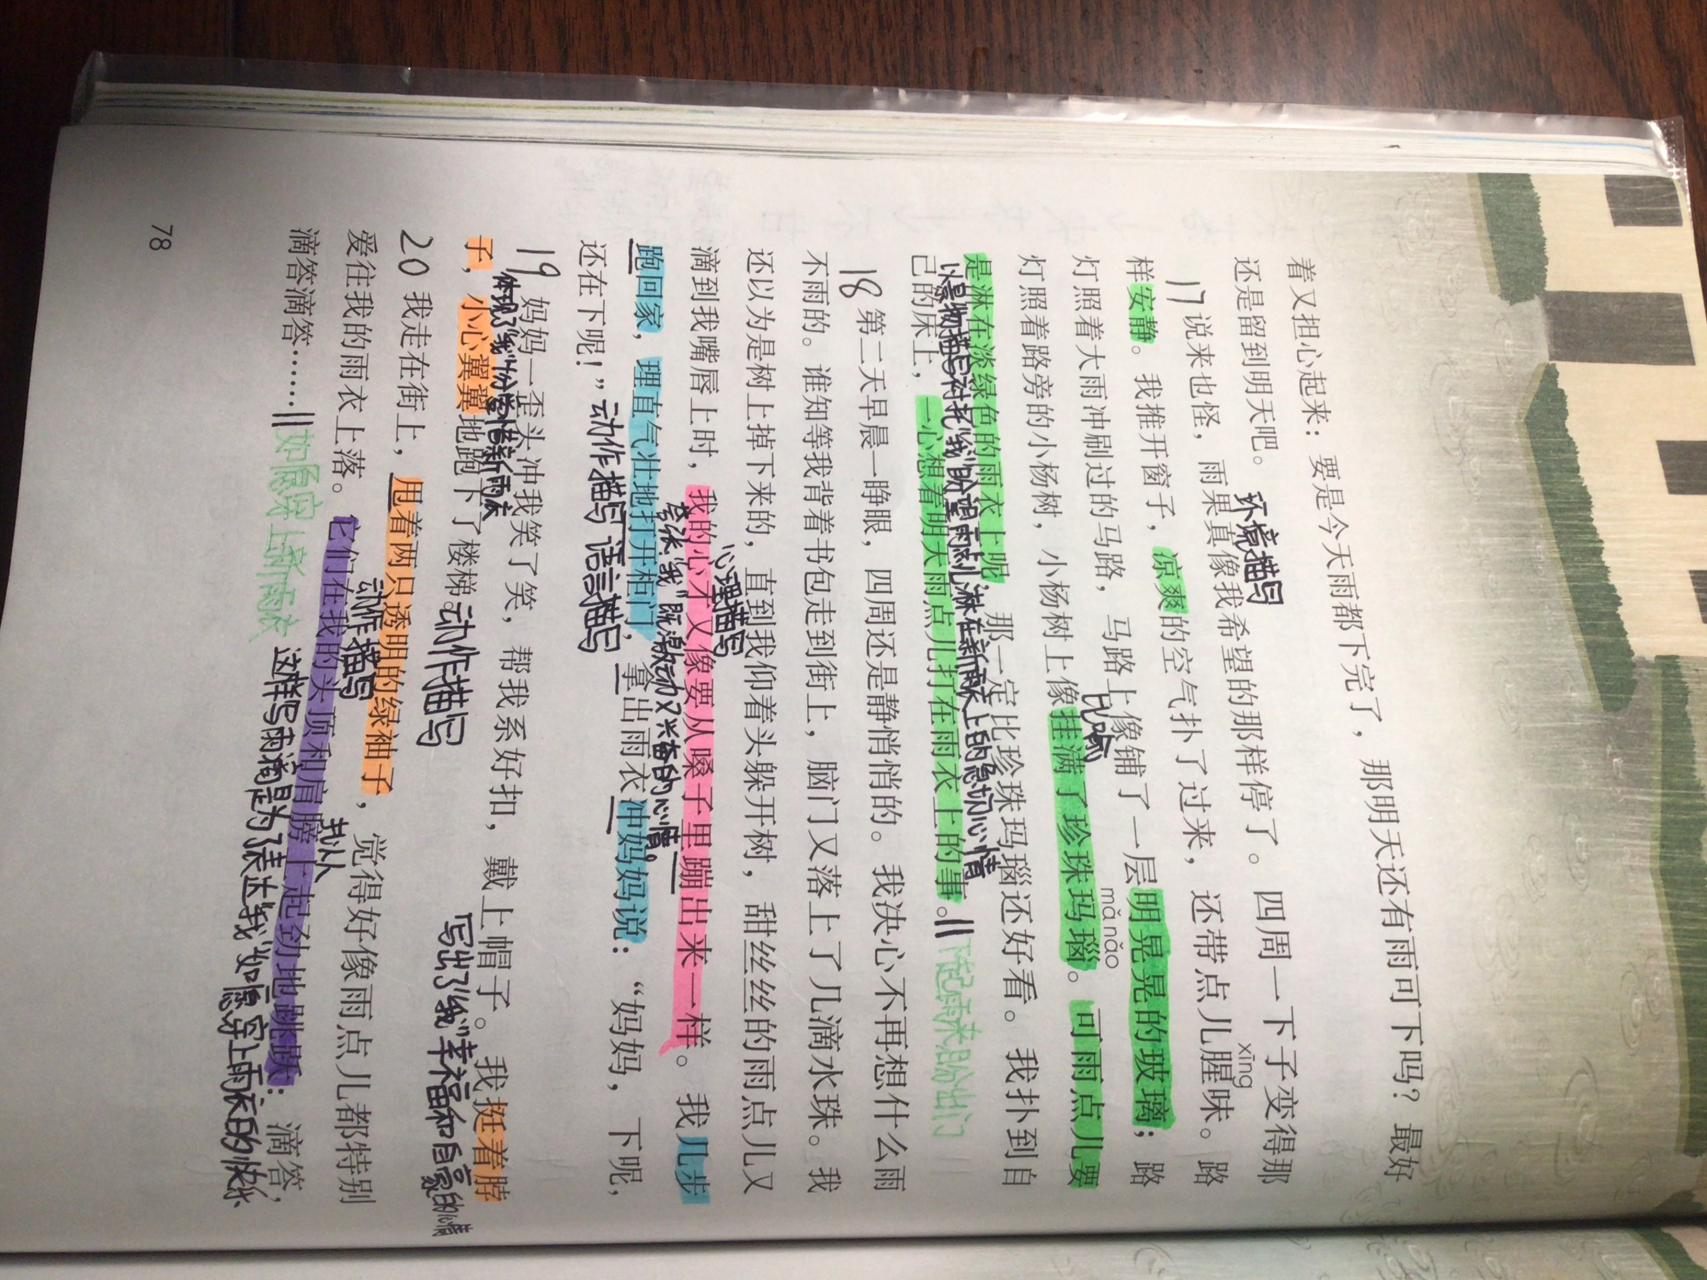 着又担心起来：要是今天雨都下完了，那明天还有雨可下吗？最好
还是留到明天吧。
环境描写
17 说来也怪，雨果真像我希望的那样停了。四周一下子变得那
xīng
样安静。我推开窗子，凉爽的空气扑了过来，还带点儿腥味。路
灯照着大雨冲刷过的马路，马路上像铺了一层明晃晃的玻璃；路
比喻
mǎ nǎo
灯照着路旁的小杨树，小杨树上像挂满了珍珠玛瑙。可雨点儿要
是淋在淡绿色的雨衣上呢，那一定比珍珠玛瑙还好看。我扑到自
以景物描写衬托“我”盼望雨点儿淋在新雨衣上的急切心情
己的床上，一心想着明天雨点儿打在雨衣上的事。|| 下起雨来盼出门
18 第二天早晨一睁眼，四周还是静悄悄的。我决心不再想什么雨
不雨的。谁知等我背着书包走到街上，脑门又落上了几滴水珠。我
还以为是树上掉下来的，直到我仰着头躲开树，甜丝丝的雨点儿又
心理描写
滴到我嘴唇上时，我的心才又像要从嗓子里蹦出来一样。我几步
夸张“我”既激动又兴奋的心情。
跑回家，理直气壮地打开柜门，拿出雨衣冲妈妈说：“妈妈，下呢，
还在下呢！” 动作描写 语言描写
19 妈妈一歪头冲我笑了笑，帮我系好扣，戴上帽子。我挺着脖
体现了“我”十分爱惜新雨衣
子，小心翼翼地跑下了楼梯。动作描写 写出了“我”幸福和自豪的心情
20 我走在街上，甩着两只透明的绿袖子，觉得好像雨点儿都特别
动作描写
拟人
爱往我的雨衣上落。它们在我的头顶和肩膀上起劲地跳跃：滴答，
滴答滴答……|| 如愿穿上新雨衣 这样写雨滴是为了表达“我”如愿穿上雨衣的快乐
78